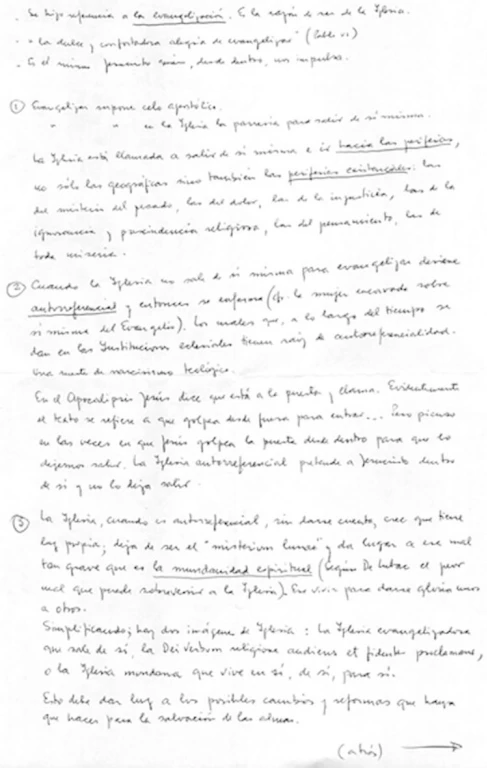 - Se hizo referencia a la evangelización. Es la razón de ser de la Iglesia.
- "La dulce y confortadora alegría de evangelizar" (Pablo VI)
- Es el mismo Jesucristo quien, desde dentro, nos impulsa.
① Evangelizar supone celo apostólico.
" " en la Iglesia la parresía para salir de sí misma.
La Iglesia está llamada a salir de sí misma e ir hacia las periferias,
no sólo las geográficas sino también las periferias existenciales: las
del misterio del pecado, las del dolor, las de la injusticia, las de la
ignorancia y prescindencia religiosa, las del pensamiento, las de
toda miseria.
② Cuando la Iglesia no sale de sí misma para evangelizar deviene
autorreferencial y entonces se enferma (cfr. la mujer encorvada sobre
sí misma del Evangelio). Los males que, a lo largo del tiempo se
dan en las Instituciones eclesiales tienen raíz de autorreferencialidad.
Una suerte de narcisismo teológico.
En el Apocalipsis Jesús dice que está a la puerta y llama. Evidentemente
el texto se refiere a que golpea desde fuera para entrar... Pero pienso
en las veces en que Jesús golpea la puerta desde dentro para que lo
dejemos salir. La Iglesia autorreferencial pretende a Jesucristo dentro
de sí y no lo deja salir.
③ La Iglesia, cuando es autorreferencial, sin darse cuenta, cree que tiene
luz propia; deja de ser el "misterium lunae" y da lugar a ese mal
tan grave que es la mundanidad espiritual (Según De Lubac el peor
mal que puede sobrevenir a la Iglesia). Ese vivir para darse gloria unos
a otros.
Simplificando; hay dos imágenes de Iglesia: la Iglesia evangelizadora
que sale de sí, la Dei Verbum religiose audiens et fidenter proclamans,
o la Iglesia mundana que vive en sí, de sí, para sí.
Esto debe dar luz a los posibles cambios y reformas que haya
que hacer para la salvación de las almas.
(atrás) →